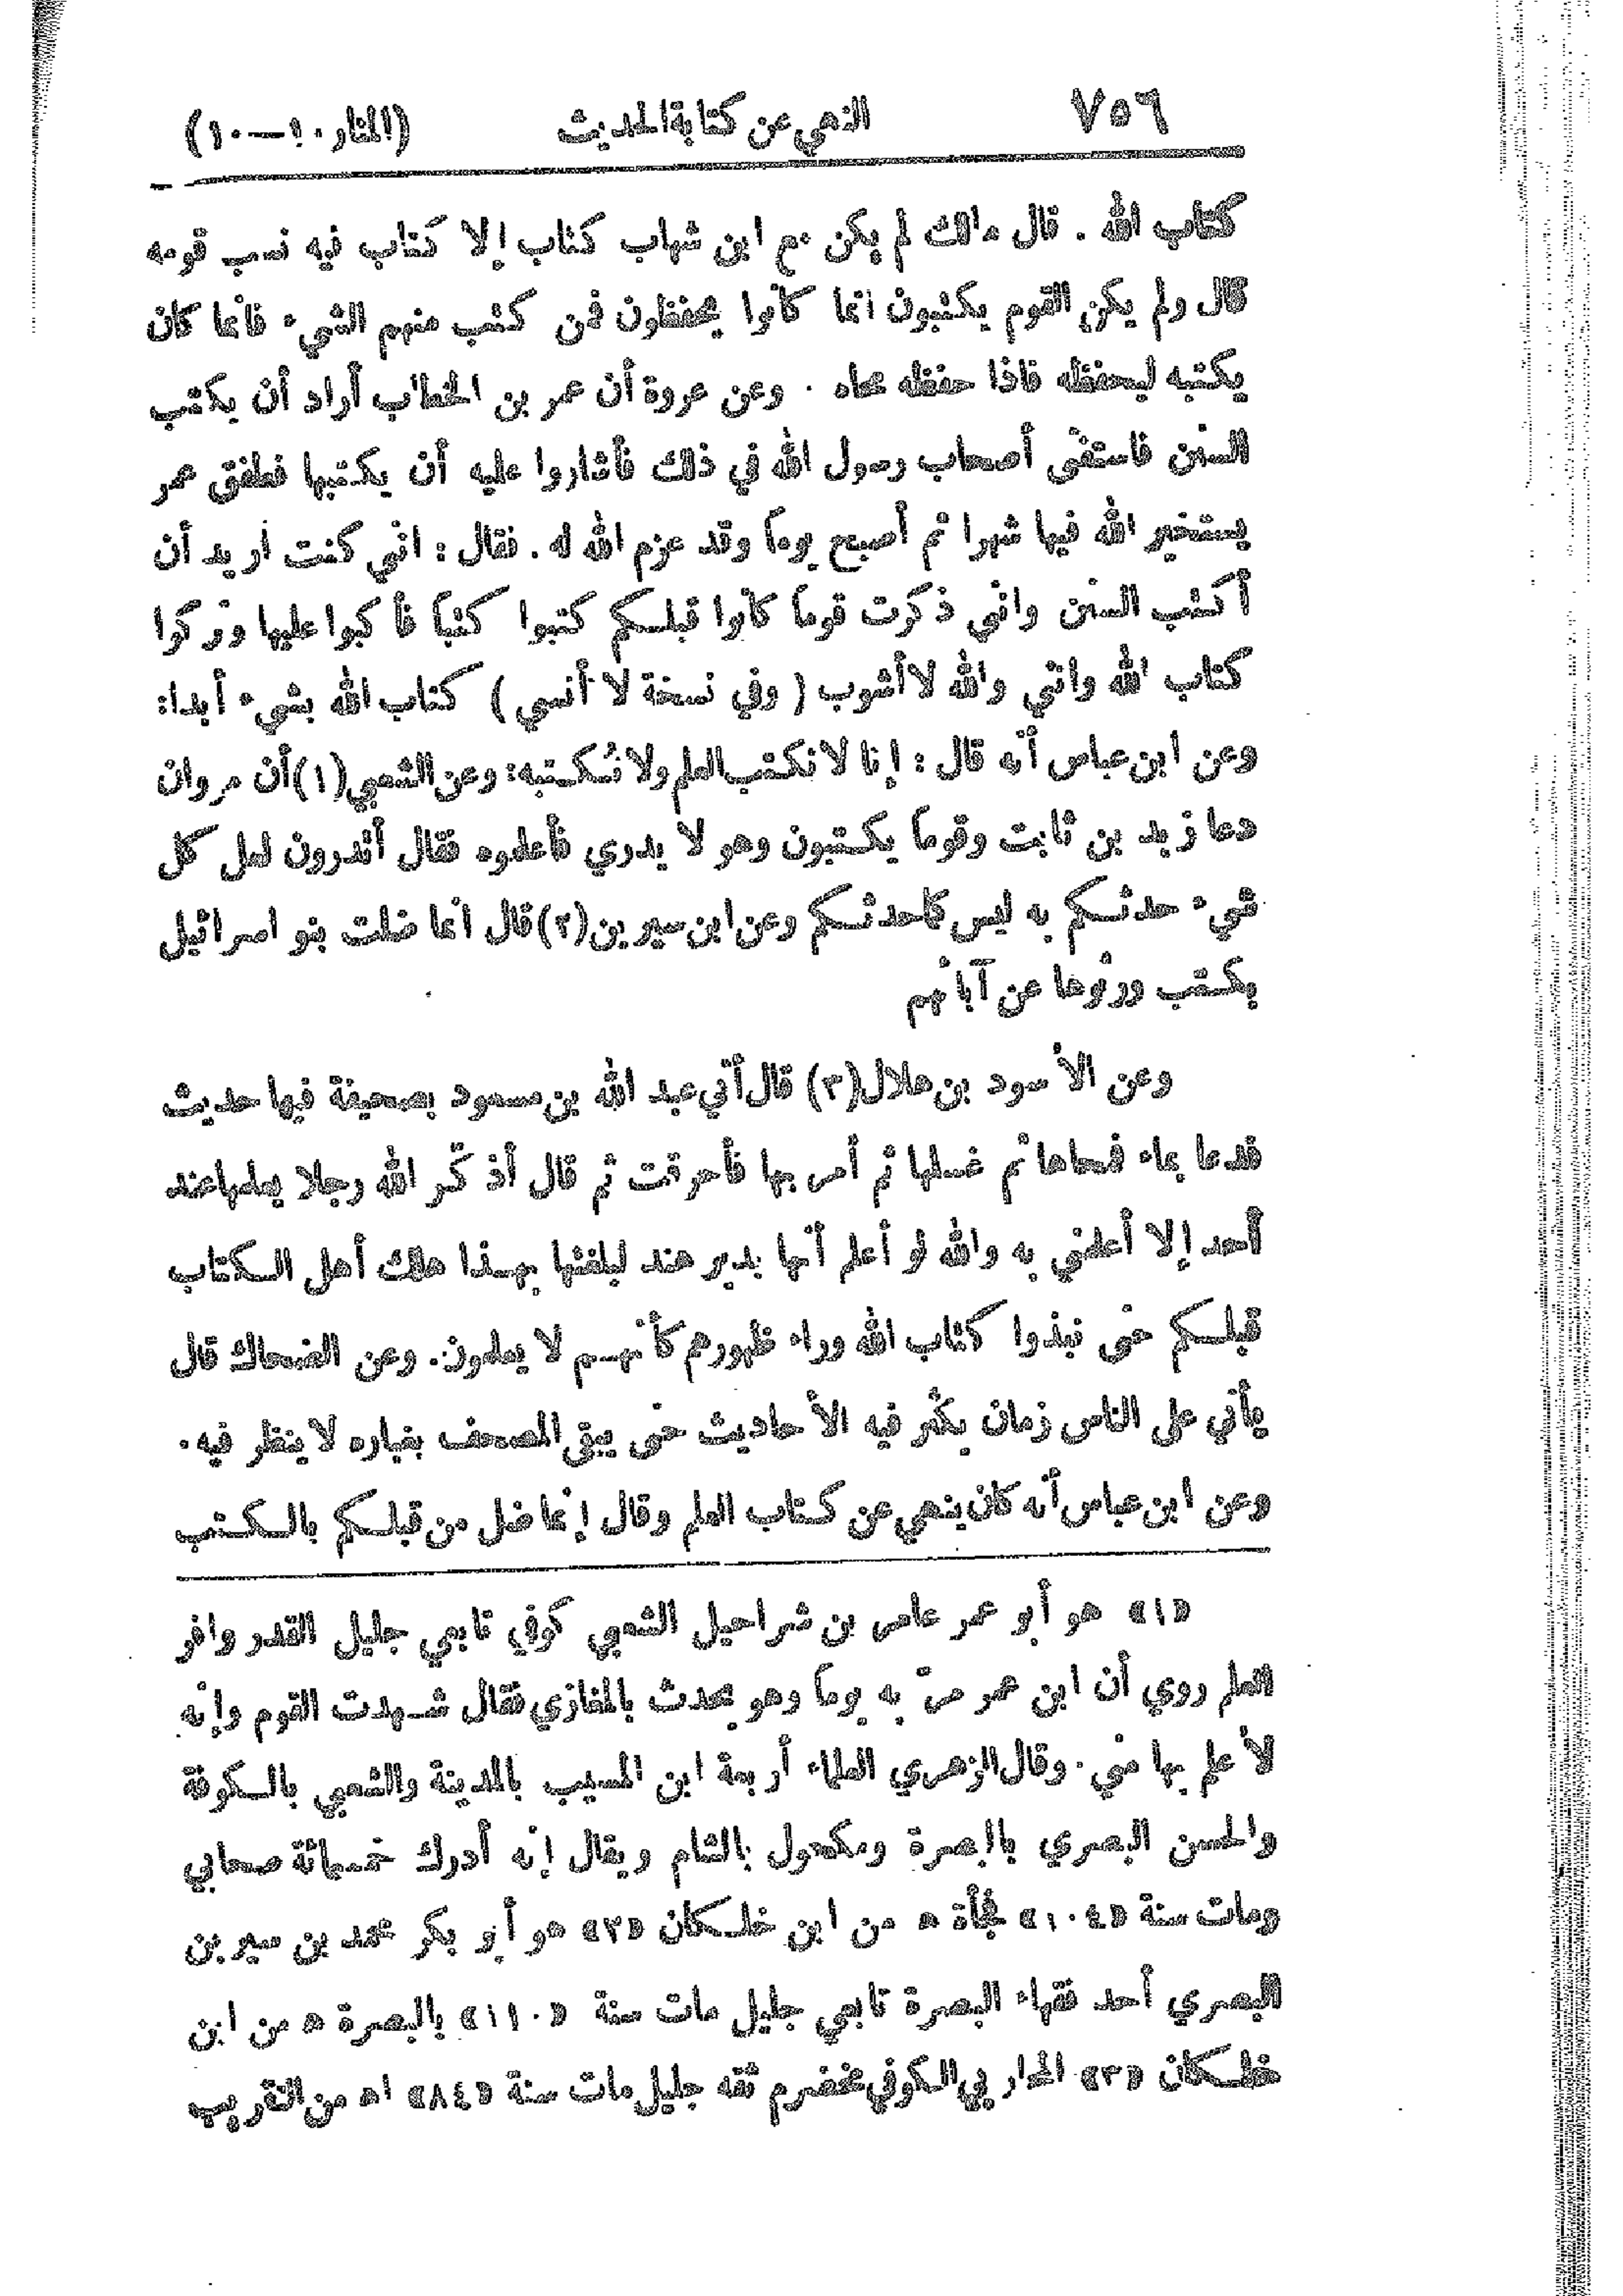 ٧٥٦ النهي عن كتابة الحديث (المنار ١٠—١٠)
كتاب الله . قال مالك لم يكن مع ابن شهاب كتاب إلا كتاب فيه نسب قومه
قال ولم يكن القوم يكتبون انما كانوا يحفظون فمن كتب منهم الشيء فانما كان
يكتبه ليحفظه فاذا حفظه محاه . وعن عروة أن عمر بن الخطاب أراد أن يكتب
السنن فاستفتى أصحاب رسول الله في ذلك فأشاروا عليه أن يكتبها فطفق عمر
يستخير الله فيها شهرا ثم أصبح يوماً وقد عزم الله له . فقال : اني كنت أريد أن
أكتب السنن واني ذكرت قوماً كانوا قبلكم كتبوا كتباً فأكبوا عليها وتركوا
كتاب الله واني والله لا أشوب ( وفي نسخة لا أنسي ) كتاب الله بشيء أبدا:
وعن ابن عباس أنه قال : إنا لا نكتب العلم ولا نُكتبه: وعن الشعبي (١) أن مروان
دعا زيد بن ثابت وقوماً يكتبون وهو لا يدري فأعلموه فقال أتدرون لعل كل
شيء حدثكم به ليس كما حدثكم وعن ابن سيرين (٢) قال انما ضلت بنو اسرائيل
بكتب ورثوها عن آبائهم
وعن الأسود بن هلال (٣) قال أتي عبد الله بن مسعود بصحيفة فيها حديث
فدعا بماء فمحاها ثم غسلها ثم أمر بها فأحرقت ثم قال أذكّر الله رجلا يعلمها عند
أحد إلا أعلمني به والله لو أعلم أنها بدير هند لبلغتها بهذا هلك أهل الكتاب
قبلكم حتى نبذوا كتاب الله وراء ظهورهم كأنهم لا يعلمون. وعن الضحاك قال
يأتي على الناس زمان يكثر فيه الأحاديث حتى يبقى المصحف بغباره لا ينظر فيه.
وعن ابن عباس أنه كان ينهى عن كتاب العلم وقال إنما ضل من قبلكم بالكتب
«١» هو أبو عمر عامر بن شراحيل الشعبي كوفي تابعي جليل القدر وافر
العلم روي أن ابن عمر مرّ به يوماً وهو يحدث بالمغازي فقال شهدت القوم وإنه
لأعلم بها مني. وقال الزهري العلماء أربعة ابن المسيب بالمدينة والشعبي بالكوفة
والحسن البصري بالبصرة ومكحول بالشام ويقال إنه أدرك خمسمائة صحابي
ومات سنة «١٠٤» فجأة اه من ابن خلكان «٢» هو أبو بكر محمد بن سيرين
البصري أحد فقهاء البصرة تابعي جليل مات سنة «١١٠» بالبصرة اه من ابن
خلكان «٣» المحاربي الكوفي مخضرم ثقه جليل مات سنة «٨٤» اه من التقريب